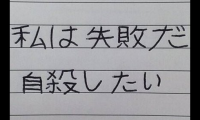 私は失敗だ
自殺したい